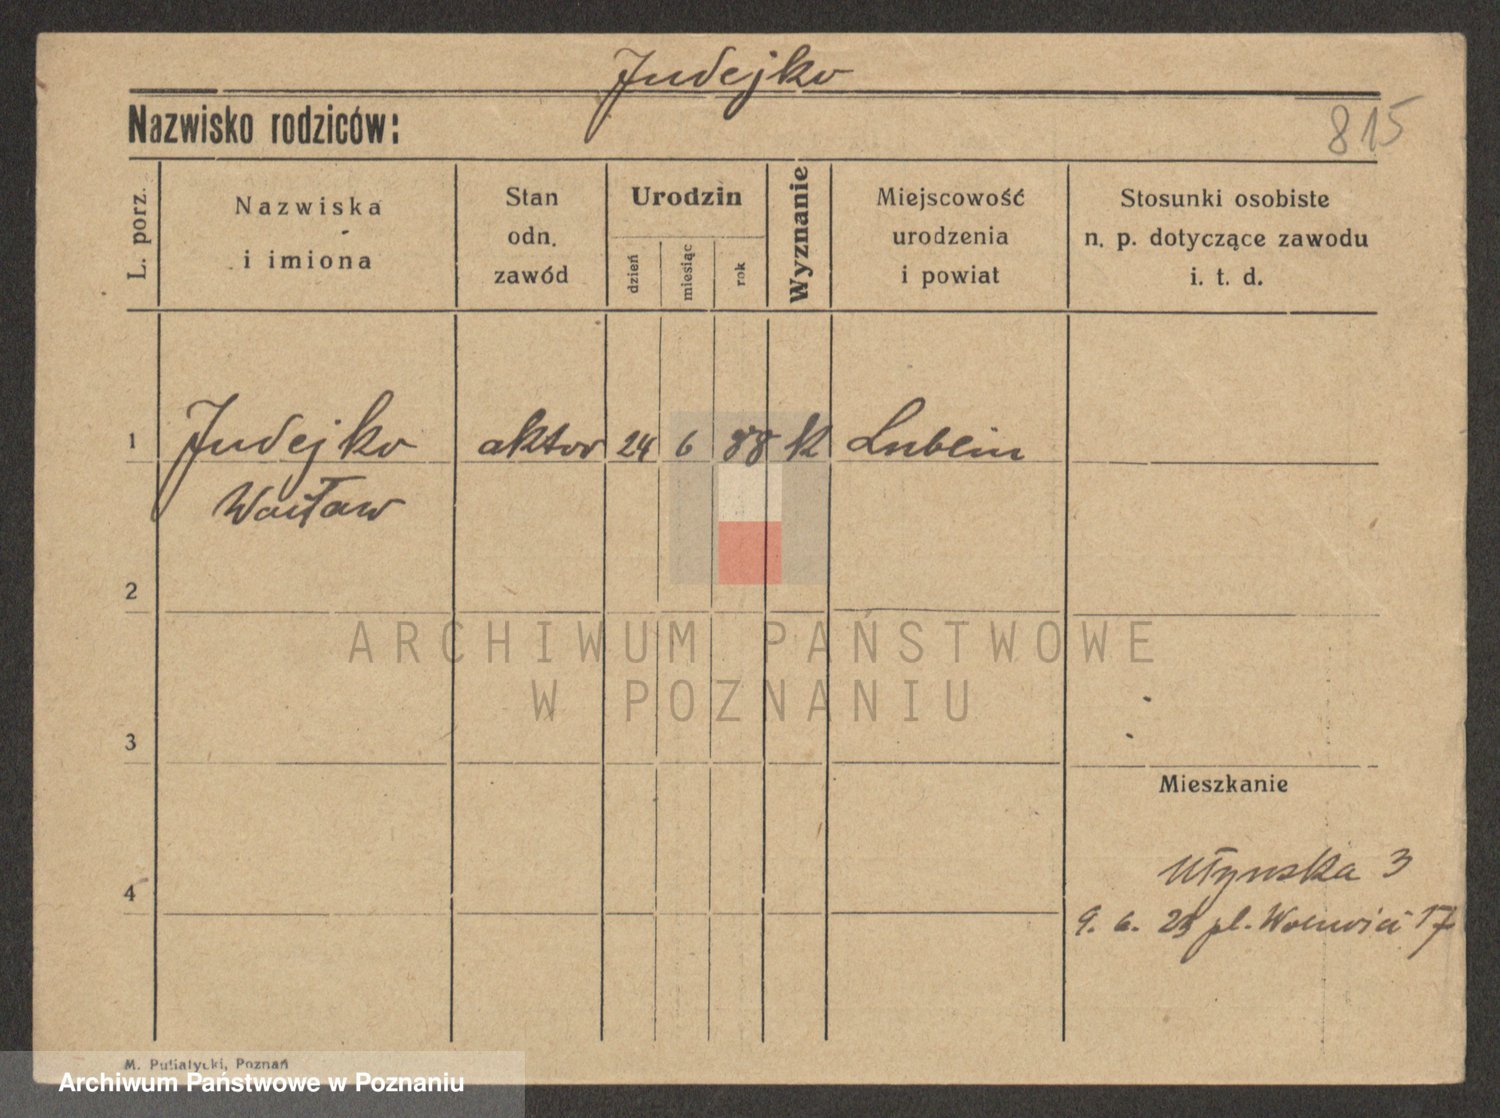 Judejko
Nazwisko rodziców:
815
L. porz.
Nazwiska
i imiona
Stan
odn.
zawód
Urodzin
dzień
miesiąc
rok
Wyznanie
Miejscowość
urodzenia
i powiat
Stosunki osobiste
n. p. dotyczące zawodu
i. t. d.
1
Judejko aktor 24 6 88 k Lublin
Wacław
2
ARCHIWUM PAŃSTWOWE
W POZNANIU
3
Mieszkanie
Młyńska 3
4
9. 6. 23 pl. Wolności 17
M. Putiatycki, Poznań
Archiwum Państwowe w Poznaniu